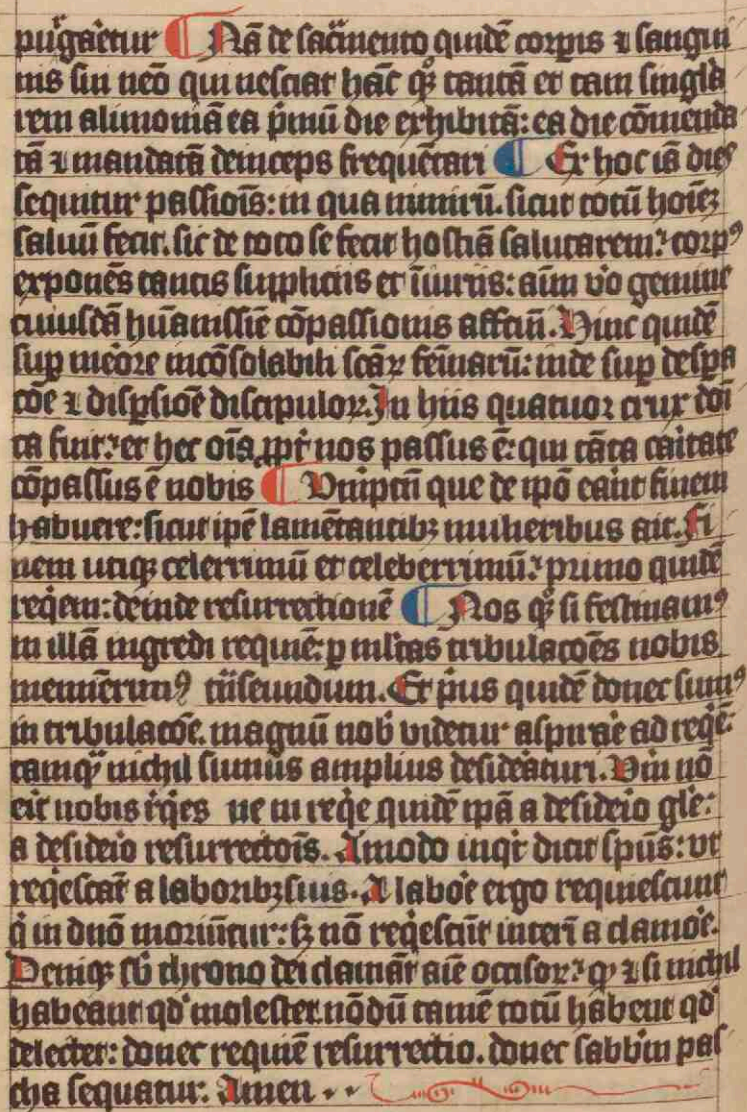 purgaretur ¶ Nā de sacͣmento quidē corpis ⁊ sangui
nis sui nēo qui nesciat hāc qq̨ tantā et tam singlͣa
rem alimoniā ea pͥmū die exhibitā: ea die cōmenda
tā ⁊ mandatā deinceps frequētari ¶ Ex hoc iā dies
sequitur passiois̄: in qua nimirū. sicut totū hoīeʒ
saluū fecit. sic de toto se fecit hostiā salutarem: corpꝰ
exponēs tantis suppliciis et īiuriis: aīm vͦo gemine
cuiusdā huāniss̄ie cōpassionis affc̄ui. Hinc quidē
suꝑ meͦore incōsolabili sc̄aꝝ feīaruʒ: inde suꝑ despa
cōe ⁊ disꝑsioē discipuloꝝ. In hiis quatuor crux dn̄i
ca fuit: et hec oīa ꝓpt̄ nos passus ē: qui tāta caritate
cōpassus ē nobis ¶ Vͤuptn̄ que de ip̄o erāt finem
habuere: sicut ip̄e lamētantibʒ mulieribus ait. Fi
nem utiqʒ celerrimū et celeberrimū: primo quidē
reqͥem: deinde resurrectionē ¶ Nos qq̨ si festinamꝰ
in illā ingredi requiē: ꝑ ml̄tas tribulac̄oes nobis
meminerimꝰ trͣnseundum. Et pͥus quidē donec sumꝰ
in tribulac̄oe. magnū nob̄ videtur aspirare ad reqͥe:
tamqͣ nichil simus amplius desideraturi. Vͤm nō
erit nobis reqͥes ne in reqͥe quidē ip̄a a desiderio gl̄e:
a desiderio resurrectois̄. Amodo inqͥt dicit sp̄us: vt
reqͥescāt a laboribʒ suis. A labore ergo requiescunt
qͥ in dn̄o moriūtur: sʒ nō reqͥescūt interī a clamore.
Deniqʒ sb̄ throno dei clamāt aīe occisoꝝ: qꝫ ⁊ si nichil
habeant qd̄ molestet. nōdū tamē totū habent qd̄
delectet: donec requiē resurrectio. donec sabbm̄ pas
cha sequatur. Amen